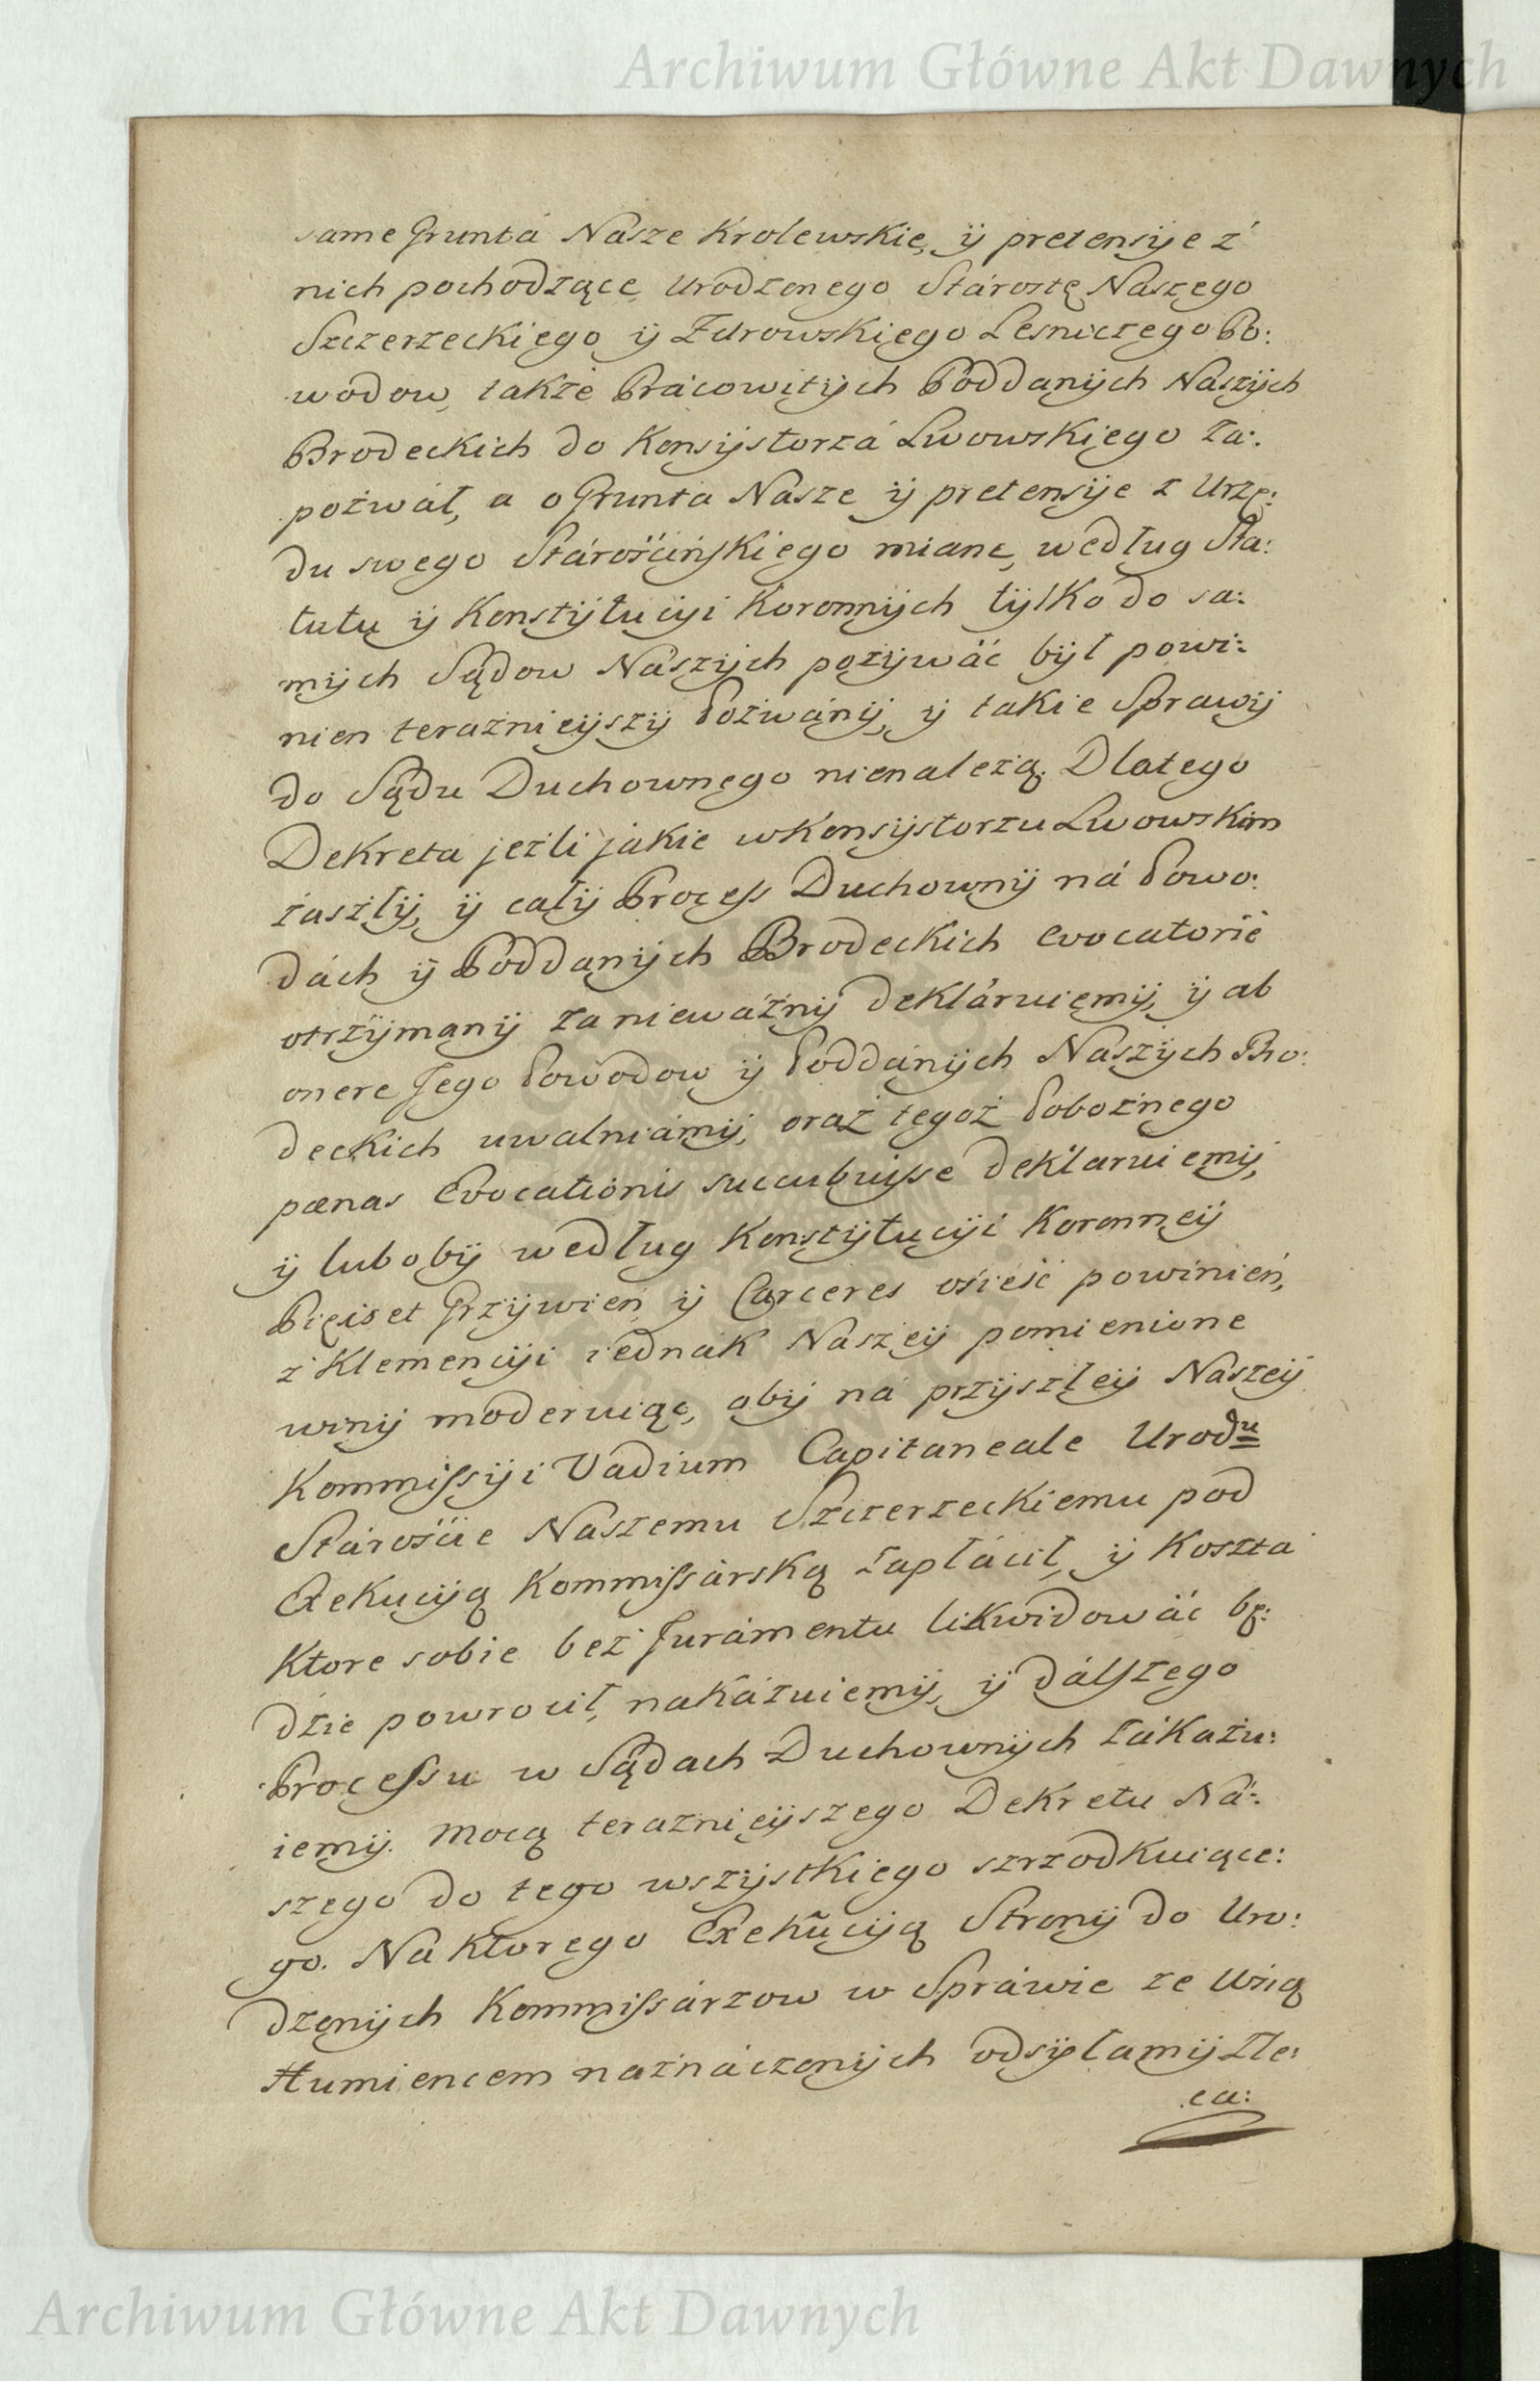 Archiwum Główne Akt Dawnych
same Grunta Nasze Krolewskie, ÿ pretensÿe z
nich pochodzące, Urodzonego Starostę Naszego
Szczerzeckiego ÿ Zdrowskiego Lesniczego Po:
wodow, także Pracowitÿch Poddanÿch Naszÿch
Brodeckich do Konsÿstorza Lwowskiego za:
pozwał, a o Grunta Nasze ÿ pretensÿe z Urzę:
du swego Starościńskiego miane, według Sta:
tutu ÿ Konstÿtucÿi Koronnÿch tÿlko do sa:
mÿch Sądow Naszÿch pozÿwać bÿł powi:
nien teraznieÿszÿ Pozwanÿ, ÿ takie Sprawÿ
do Sądu Duchownego nienalezą. Dlatego
Dekreta jezli jakie w Konsÿstorzu Lwowskim
zaszłÿ, ÿ całÿ Process Duchownÿ na Powo:
dach ÿ Poddanÿch Brodeckich evocatorie
otrzÿmanÿ za nieważnÿ deklaruiemÿ, ÿ ab
onere Jego Powodow ÿ Poddanÿch Naszÿch Bro:
deckich uwalniamÿ, oraz tegoż Pobożnego
pœnas Evocationis succubuisse deklaruiemÿ,
ÿ lubobÿ według Konstÿtucÿi Koronneÿ
Pięiset Grzÿwien ÿ Carceres osieść powinień,
z Klemencÿi iednak Naszeÿ pomienione
winÿ moderuiąc, abÿ na przÿszłeÿ Naszeÿ
Kommissÿi Vadium Capitaneale Urodu
Starościie Naszemu Szczerzeckiemu pod
Exekucÿą Kommissarską zapłacił, ÿ Koszta
Ktore sobie bez Juramentu likwidować bę:
dzie powrocił, nakazuiemÿ, ÿ dalszego
Processu w Sądach Duchownÿch zakazu:
iemÿ. Mocą teraznieÿszego Dekretu Na:
szego do tego wszÿstkiego szrzodkuiące:
go. Na Ktorego Exekucÿą Stronÿ do Uro:
dzonÿch Kommissarzow w Sprawie ze Wsią
Humiencem naznaczonÿch odsÿłamÿ Zle:
ca:
Archiwum Główne Akt Dawnych